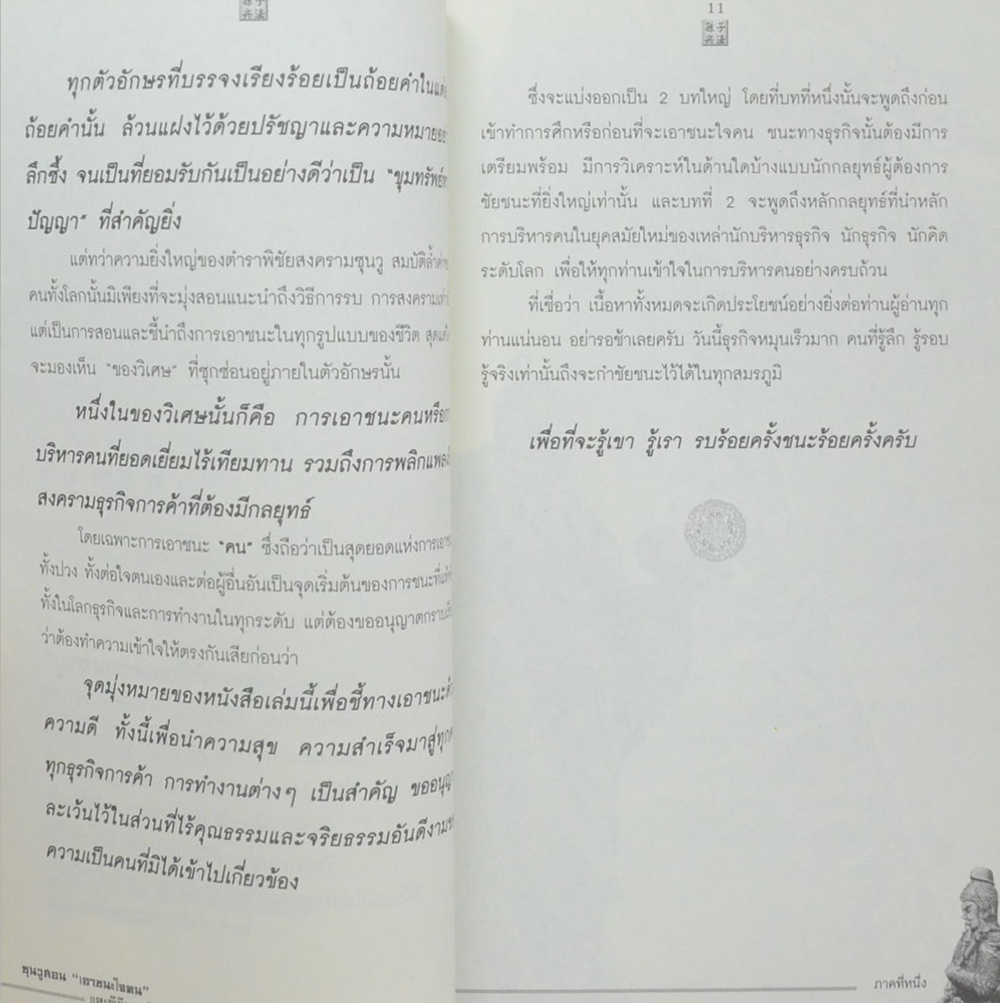 ทุกตัวอักษรที่บรรจงเรียงร้อยเป็นถ้อยคำใน
ถ้อยคำนั้น ล้วนแฝงไว้ด้วยปรัชญาและความหมาย
ลึกซึ้ง จนเป็นที่ยอมรับกันเป็นอย่างดีว่าเป็น "ขุมทรัพย์
ปัญญา" ที่สำคัญยิ่ง
แต่ทว่าความยิ่งใหญ่ของตำราพิชัยสงครามซุนวู สมบัติล้ำ
คนทั้งโลกนั้นมิเพียงที่จะมุ่งสอนแนะนำถึงวิธีการรบ การสงคราม
แต่เป็นการสอนและชี้นำถึงการเอาชนะในทุกรูปแบบของชีวิต
จะมองเห็น "ของวิเศษ" ที่ซุกซ่อนอยู่ภายในตัวอักษรนั้น
หนึ่งในของวิเศษนั้นก็คือ การเอาชนะคนหรือ
บริหารคนที่ยอดเยี่ยมไร้เทียมทาน รวมถึงการพลิกแพลง
สงครามธุรกิจการค้าที่ต้องมีกลยุทธ์
โดยเฉพาะการเอาชนะ "คน" ซึ่งถือว่าเป็นสุดยอดแห่งการ
ทั้งปวง ทั้งต่อใจตนเองและต่อผู้อื่นอันเป็นจุดเริ่มต้นของการชนะที่
ทั้งในโลกธุรกิจและการทำงานในทุกระดับ แต่ต้องขออนุญาต
ว่าต้องทำความเข้าใจให้ตรงกันเสียก่อนว่า
จุดมุ่งหมายของหนังสือเล่มนี้เพื่อชี้ทางเอาชนะ
ความดี ทั้งนี้เพื่อนำความสุข ความสำเร็จมาสู่
ทุกธุรกิจการค้า การทำงานต่างๆ เป็นสำคัญ
ละเว้นไว้ในส่วนที่ไร้คุณธรรมและจริยธรรมอันดีงาม
ความเป็นคนที่มิได้เข้าไปเกี่ยวข้อง
ซุนวูสอน "เอาชนะใจคน"
11
孫子兵法
ซึ่งจะแบ่งออกเป็น 2 บทใหญ่ โดยที่บทที่หนึ่งนั้นจะพูดถึงก่อน
เข้าทำการศึกหรือก่อนที่จะเอาชนะใจคน ชนะทางธุรกิจนั้นต้องมีการ
เตรียมพร้อม มีการวิเคราะห์ในด้านใดบ้างแบบนักกลยุทธ์ผู้ต้องการ
ชัยชนะที่ยิ่งใหญ่เท่านั้น และบทที่ 2 จะพูดถึงหลักกลยุทธ์ที่นำหลัก
การบริหารคนในยุคสมัยใหม่ของเหล่านักบริหารธุรกิจ นักธุรกิจ นักคิด
ระดับโลก เพื่อให้ทุกท่านเข้าใจในการบริหารคนอย่างครบถ้วน
ที่เชื่อว่า เนื้อหาทั้งหมดจะเกิดประโยชน์อย่างยิ่งต่อท่านผู้อ่านทุก
ท่านแน่นอน อย่ารอช้าเลยครับ วันนี้ธุรกิจหมุนเร็วมาก คนที่รู้ลึก รู้รอบ
รู้จริงเท่านั้นถึงจะกำชัยชนะไว้ได้ในทุกสมรภูมิ
เพื่อที่จะรู้เขา รู้เรา รบร้อยครั้งชนะร้อยครั้งครับ
ภาคที่หนึ่ง